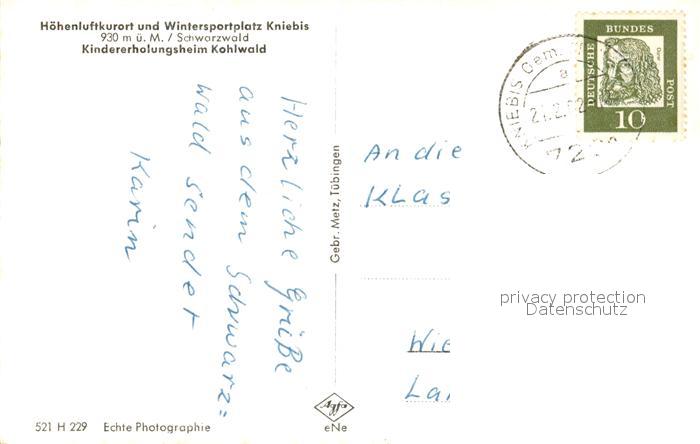 Höhenluftkurort und Wintersportplatz Kniebis
930 m ü. M. / Schwarzwald
Kindererholungsheim Kohlwald
Herzliche Grüße
aus dem Schwarz=
wald sendet
Karin
Gebr. Metz, Tübingen
An die
KLas
Wie
La
KNIEBIS
a
DEUTSCHE
BUNDES
POST
Dürer
10
privacy protection
Datenschutz
Agfa
eNe
521 H 229 Echte Photographie